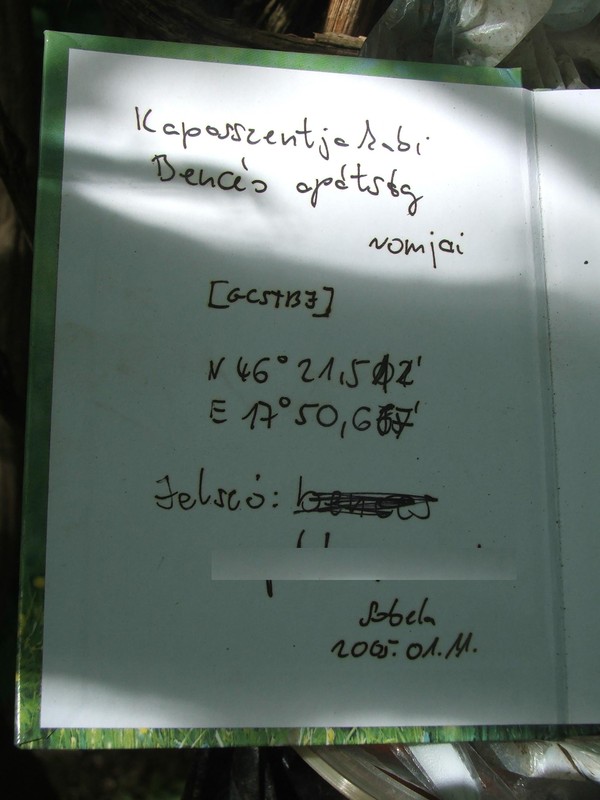 Kaposszentjakabi
Bencés apátság
romjai
[GCSTBJ]
N 46° 21,5
E 17° 50,6
Jelszó:
2005.01.11.